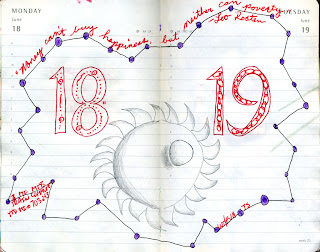 MONDAY
June
18
TUESDAY
June
19
"Money can't buy happiness but neither can poverty."
Leo Rosten
18
19